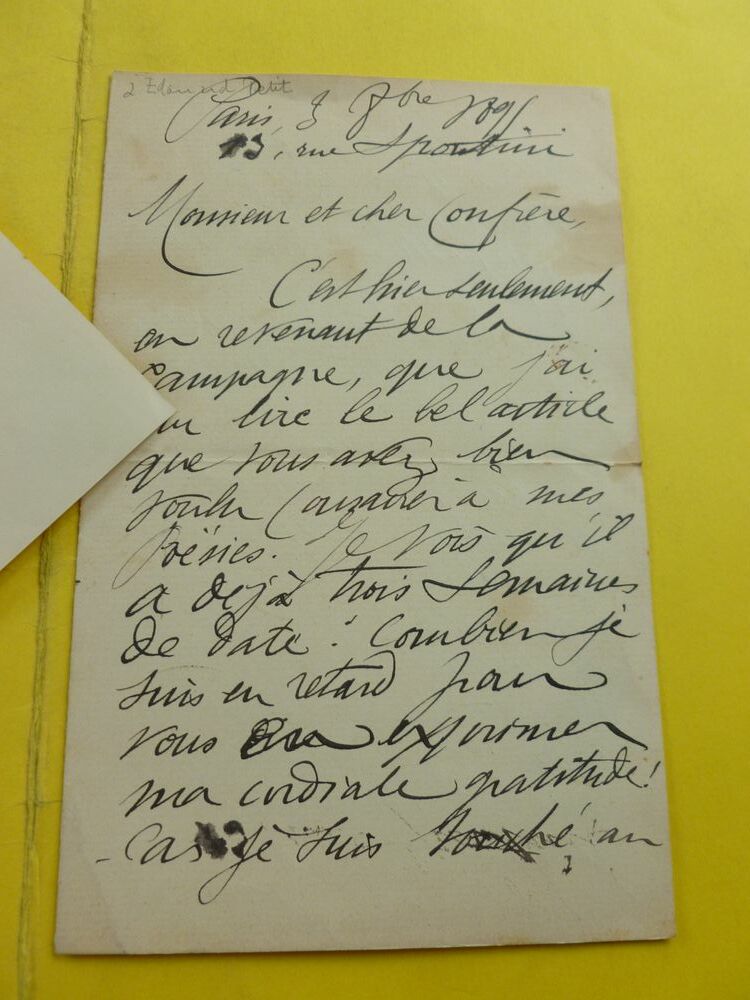 2 Edouard Petit
Paris, 3 8bre 1895
13, rue Spontini
Monsieur et cher Confrère,
C'est hier seulement,
en revenant de la
campagne, que j'ai
pu lire le bel article
que vous avez bien
voulu consacrer à mes
Poésies. Je vois qu'il
a déjà trois semaines
de date! Combien je
suis en retard pour
vous exprimer
ma cordiale gratitude!
- Car je suis touché au